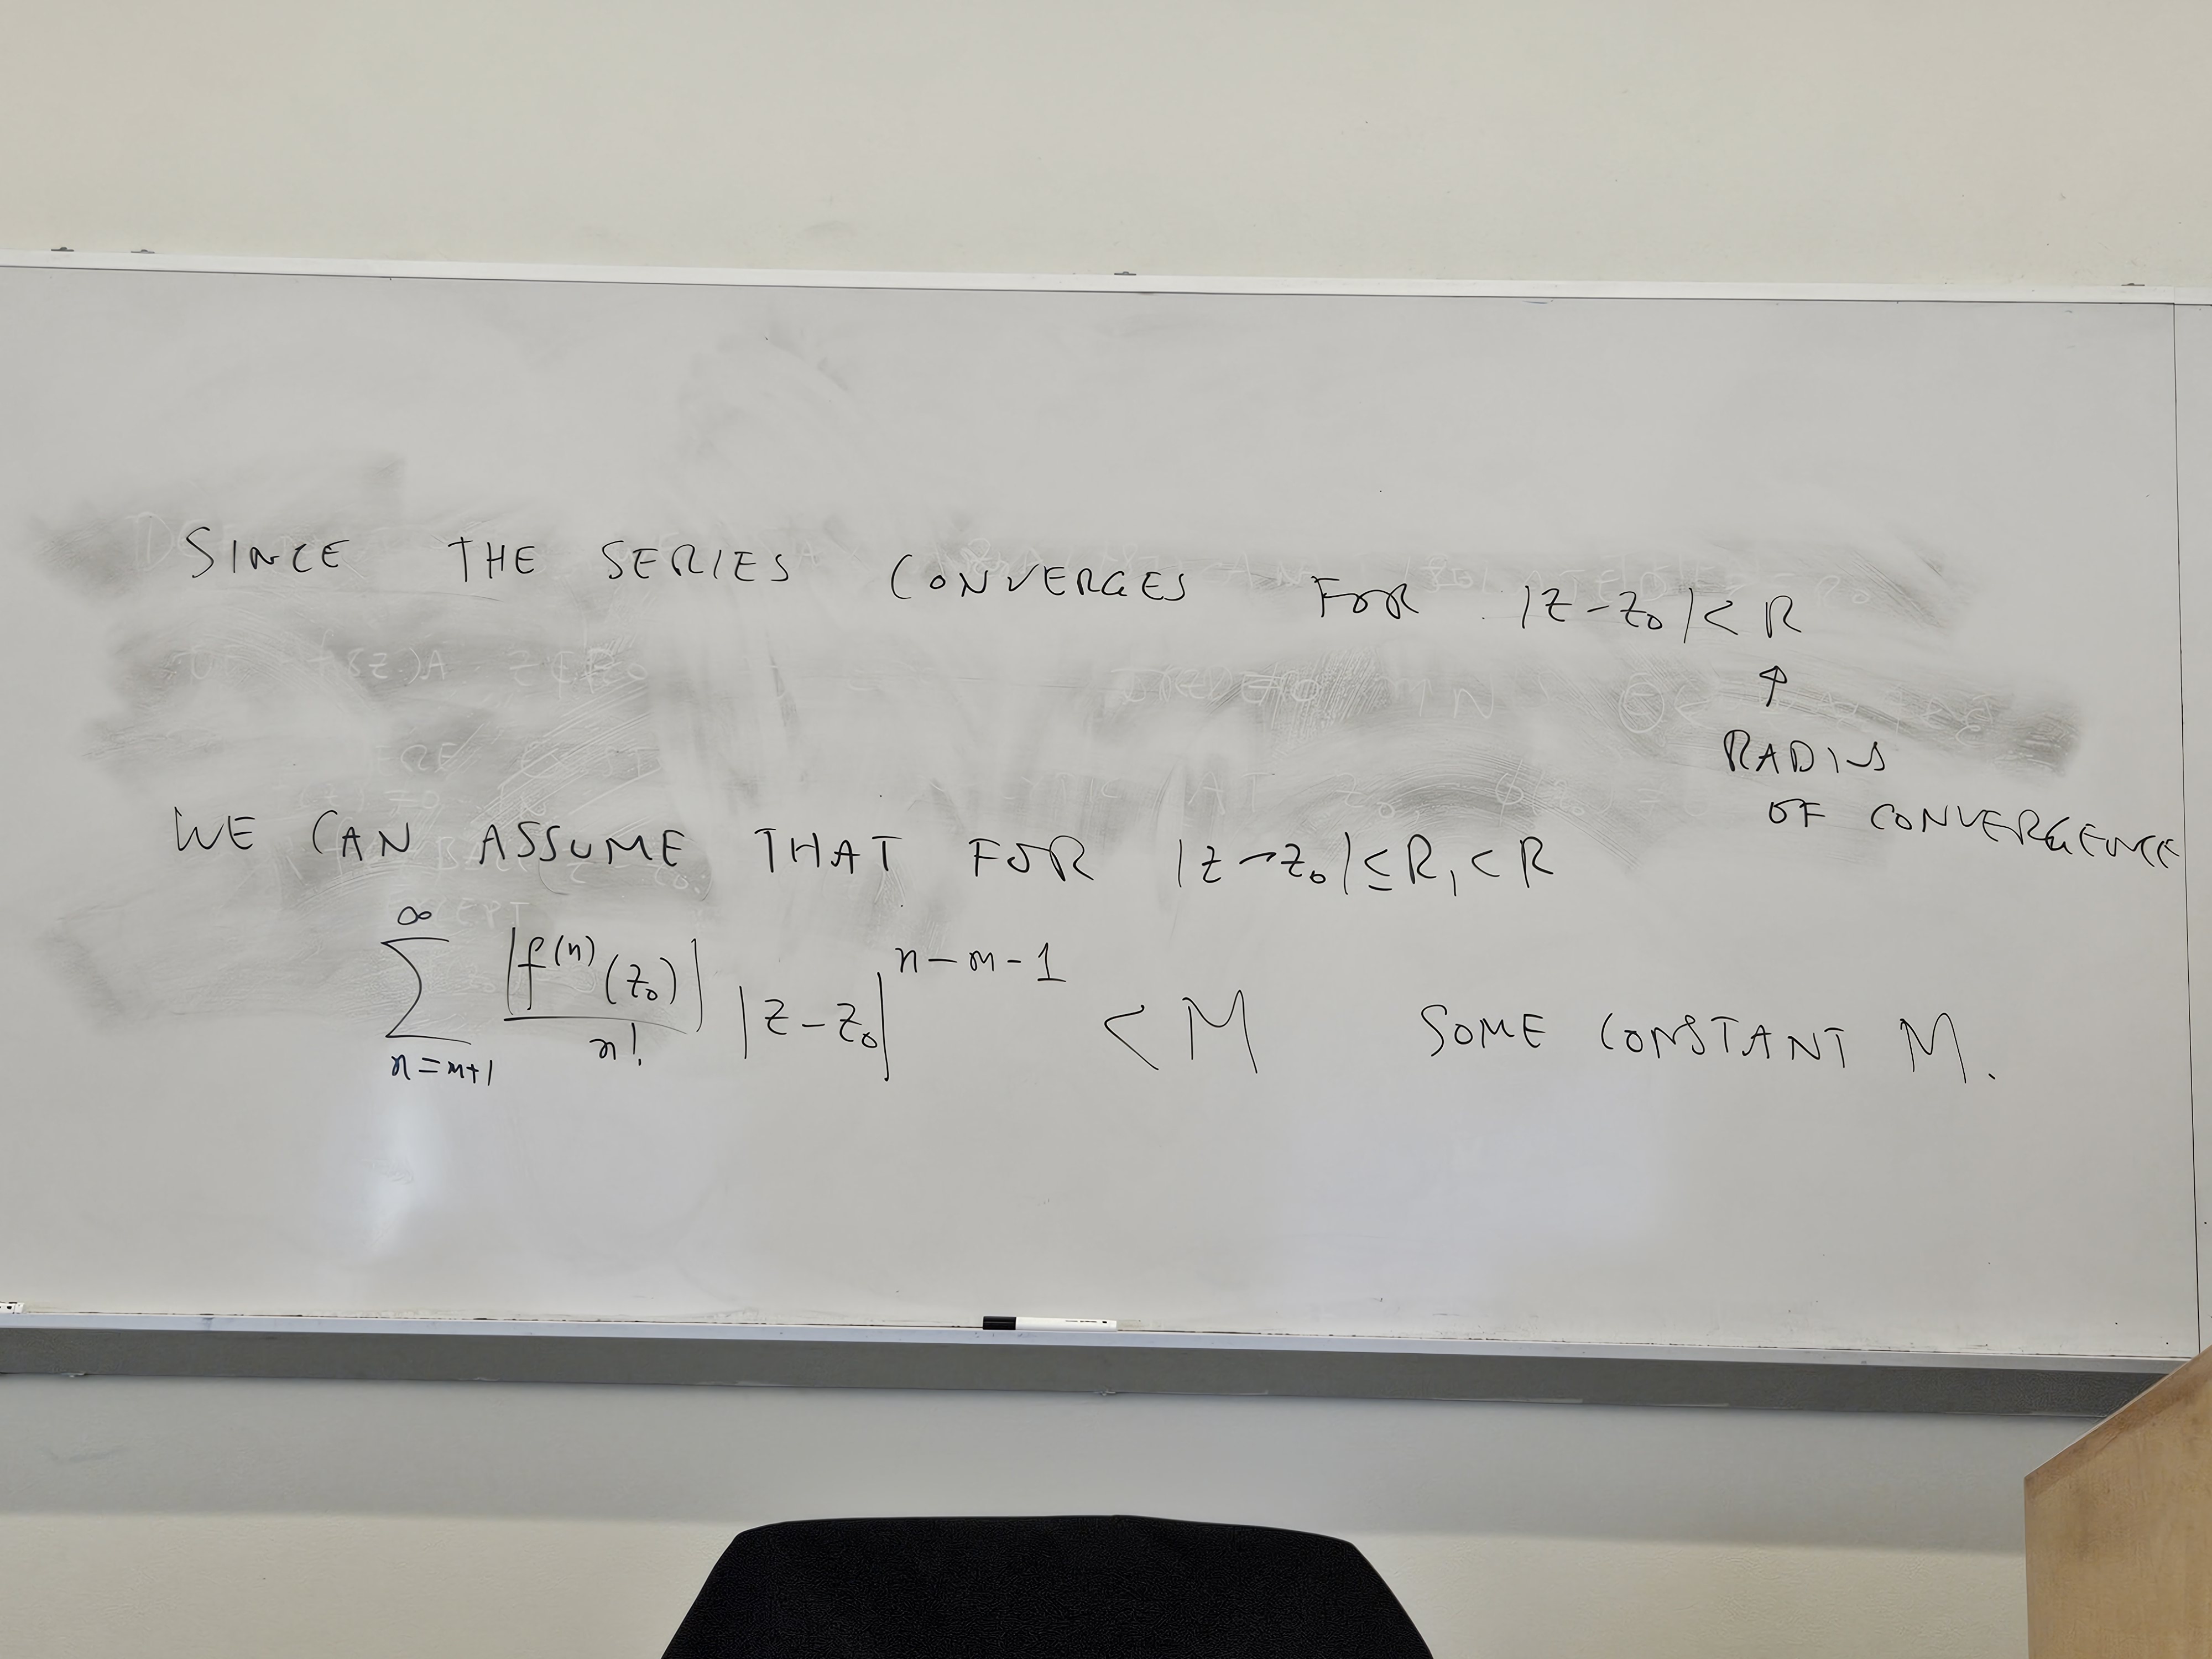 SINCE THE SERIES CONVERGES FOR |z-z₀|< R
↑
RADIUS
OF CONVERGENCE
WE CAN ASSUME THAT FOR |z-z₀|≤R₁< R
∑_{n=m+1}^{∞} |f⁽ⁿ⁾(z₀)|/n! |z-z₀|^{n-m-1} < M SOME CONSTANT M.